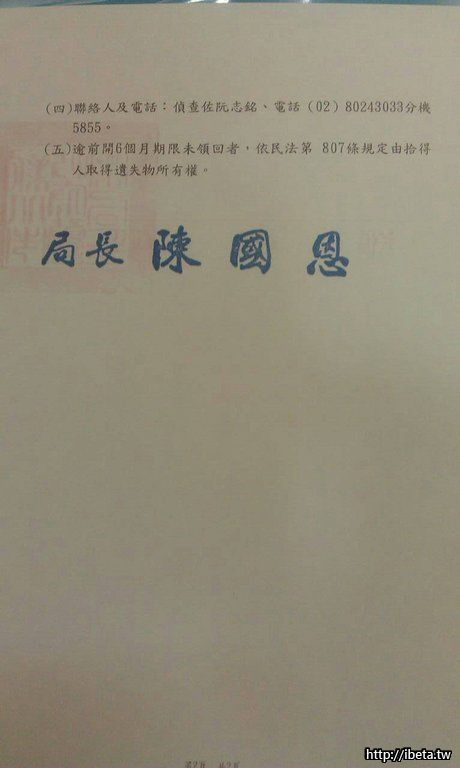 (四)聯絡人及電話：偵查佐阮志銘、電話（02）80243033分機
5855。
(五)逾前開6個月期限未領回者，依民法第 807條規定由拾得
人取得遺失物所有權。
局長 陳國恩
第2頁 共2頁
http://ibeta.tw